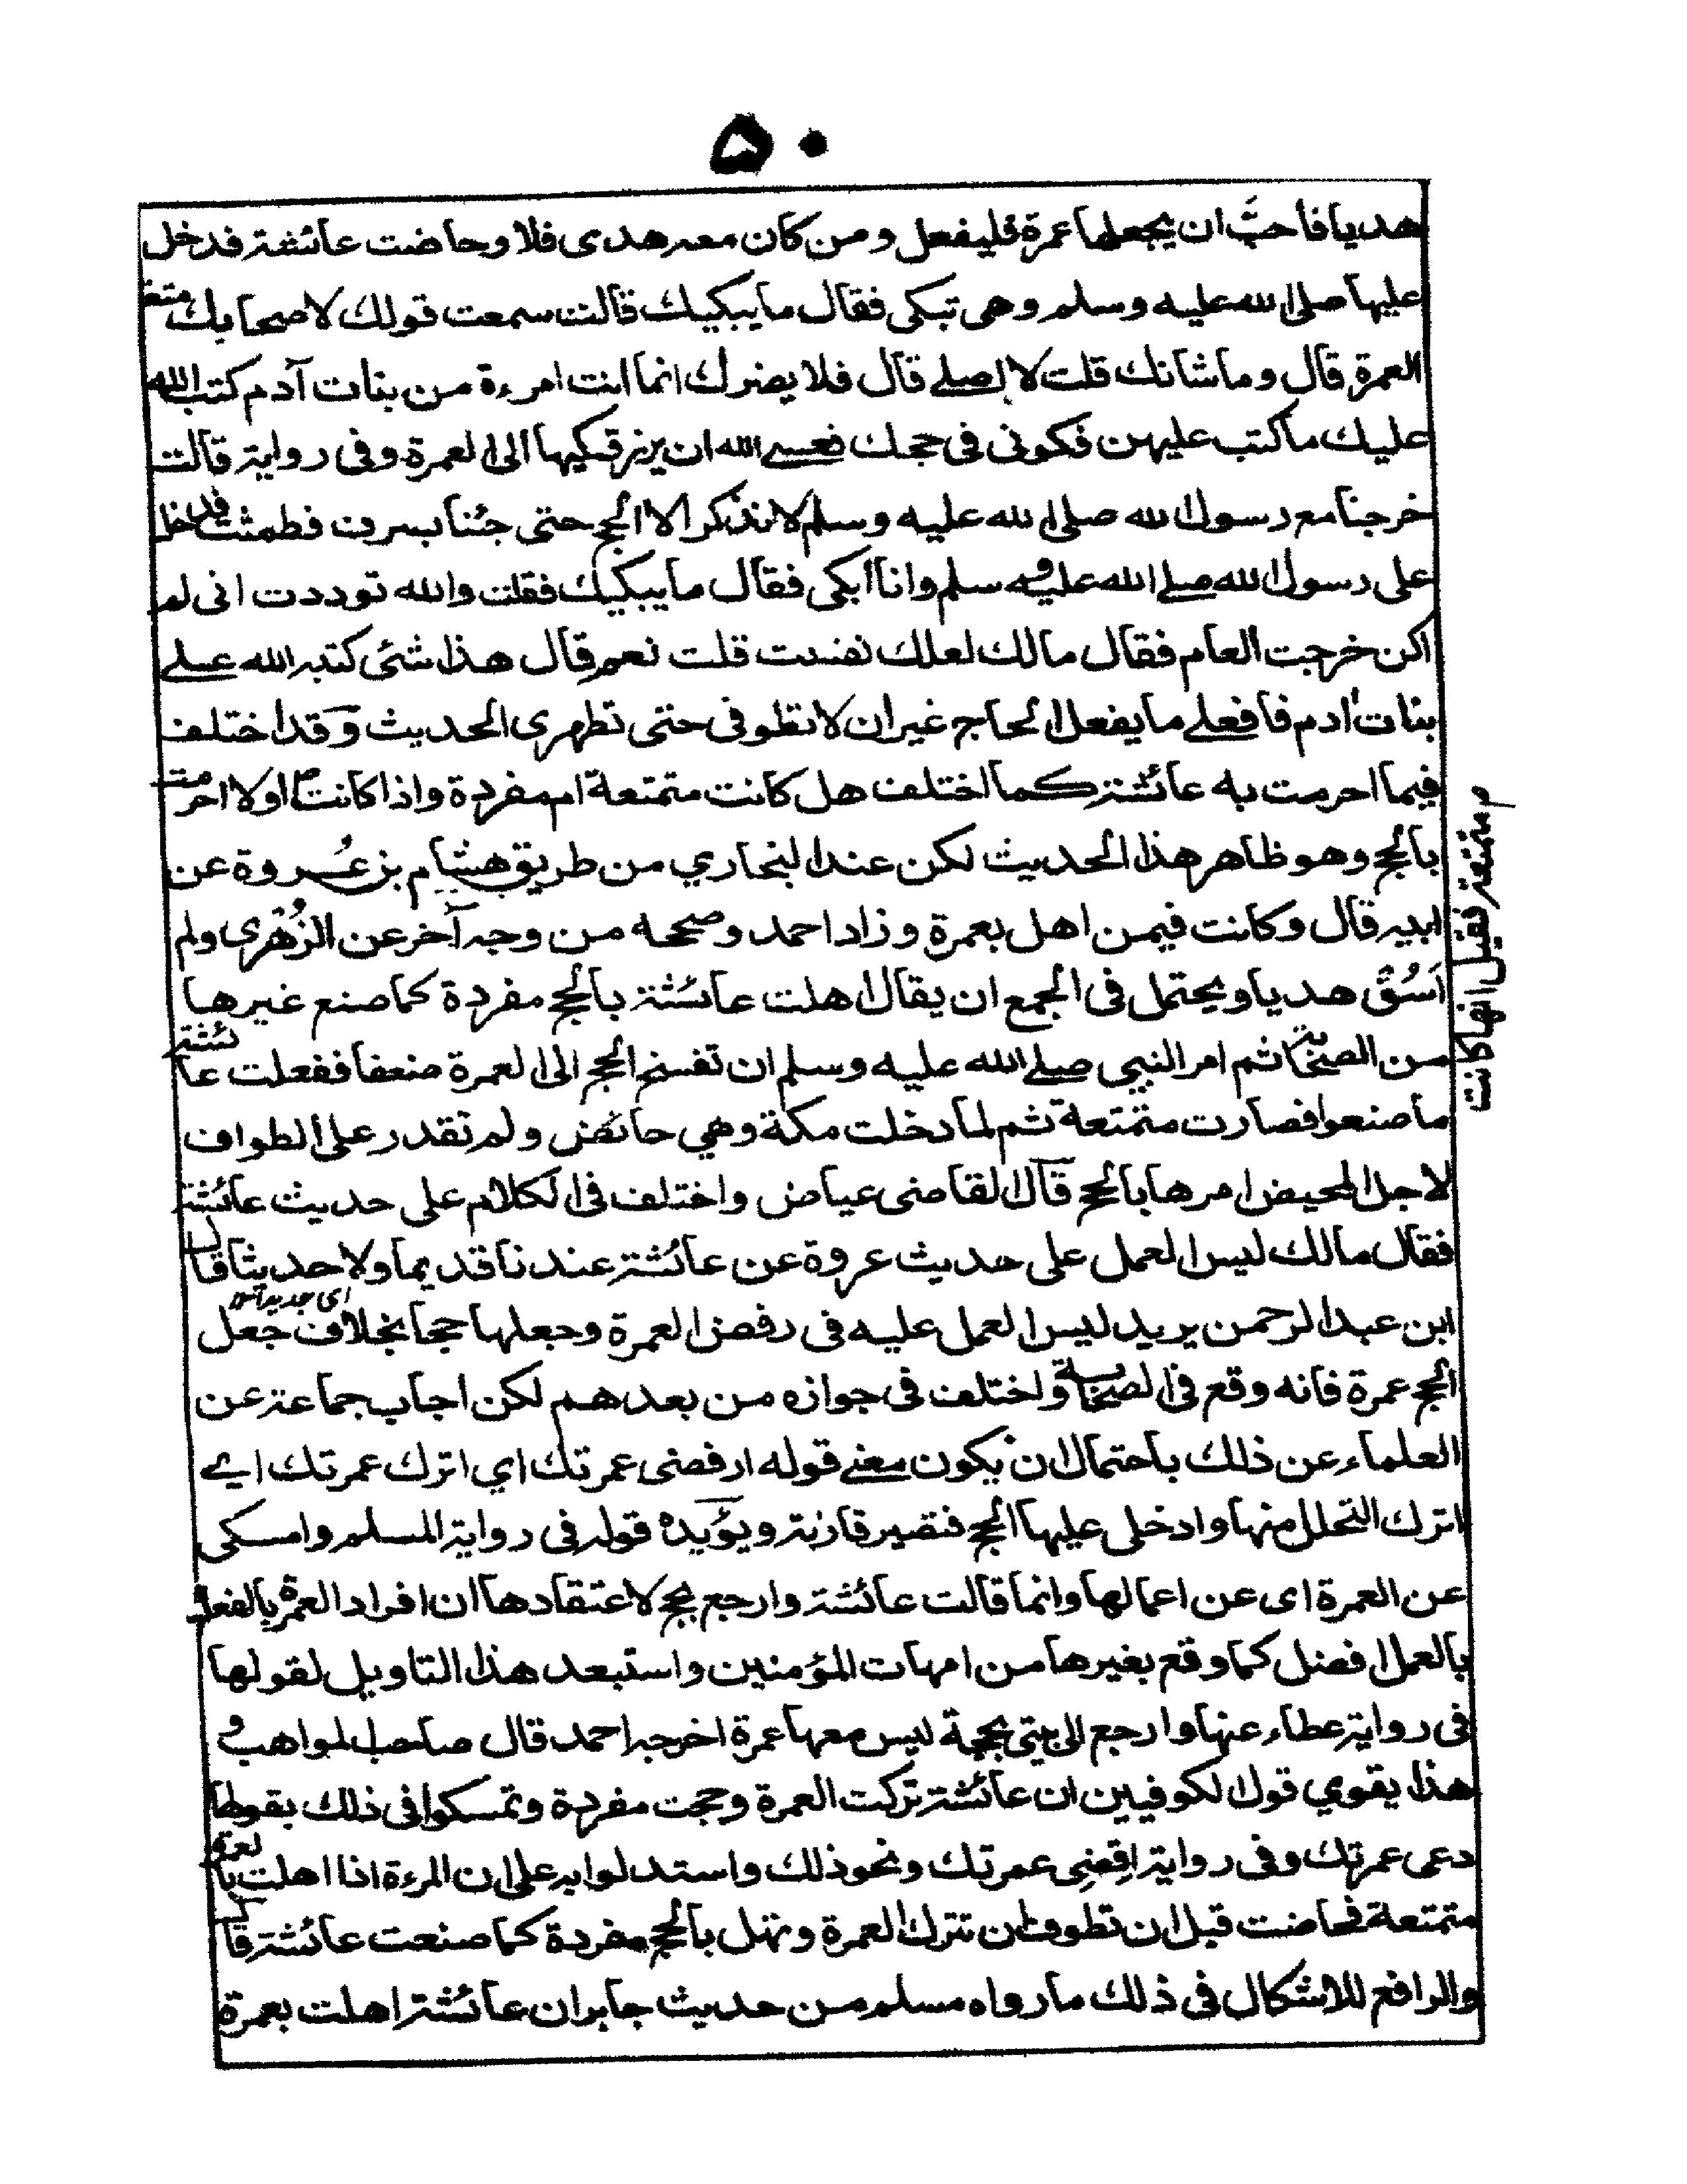 ٥٠
هديا فأحبَّ ان يجعلها عمرة فليفعل ومن كان معه هدى فلا وحاضت عائشة فدخل
عليها صلى الله عليه وسلم وهى تبكى فقال ما يبكيك قالت سمعت قولك لاصحابك متعت
العمرة قال وما شانك قلت لا اصلے قال فلا يضرك انما انت امرءة من بنات آدم كتب الله
عليك ما كتب عليهن فكونى فى حجك فعسے الله ان يرزقكيها الى العمرة وفى رواية قالت
خرجنا مع رسول الله صلى الله عليه وسلم لا نذكر الا الحج حتى جئنا بسرف فطمثت فدخل
على رسول الله صلے الله عليه وسلم وانا ابكى فقال ما يبكيك فقلت والله توددت انى لم
اكن خرجت العام فقال مالك لعلك نفست قلت نعم قال هذا شئ كتبه الله علے
بنات ادم فافعلے ما يفعل الحاج غير ان لا تطوفى حتى تطهرى الحديث وقد اختلف
فيما احرمت به عائشة كما اختلف هل كانت متمتعة ام مفردة واذا كانت اولا احرمت
متمتعة فقيل انها كانت
بالحج وهو ظاهر هذا الحديث لكن عند البخاري من طريق هشام بن عُروة عن
ابيه قال وكانت فيمن اهل بعمرة وزاد احمد وصححه من وجه آخر عن الزُهرى ولم
اَسُقْ هديا ويحتمل فى الجمع ان يقال اهلت عائشة بالحج مفردة كما صنع غيرها
من الصحابة ثم امر النبي صلے الله عليه وسلم ان تفسخ الحج الى العمرة ضعفا ففعلت عائشة
ما صنعوا فصارت متمتعة ثم لما دخلت مكة وهي حائض ولم تقدر على الطواف
لاجل المحيض امرها بالحج قال القاضى عياض واختلف فى الكلام على حديث عائشة
فقال مالك ليس العمل على حديث عروة عن عائشة عندنا قديما ولا حديثا قال
اى جديدا
ابن عبد الرحمن يريد ليس العمل عليه فى رفض العمرة وجعلها حجا بخلاف جعل
الحج عمرة فانه وقع فى الصحابة واختلف فى جوازه من بعدهم لكن اجاب جماعة عن
العلماء عن ذلك باحتمال ان يكون معنے قوله ارفضى عمرتك اي اترك عمرتك اے
اترك التحلل منها وادخلى عليها الحج فتصير قارنة ويؤيده قوله فى رواية المسلم وامسكى
عن العمرة اى عن اعمالها وانما قالت عائشة وارجع بحج لاعتقادها ان افراد العمرة بالفعل
بالعمل افضل كما وقع بغيرها من امهات المؤمنين واستبعد هذا التاويل لقولها
فى رواية عطاء عنها وارجع الى بيتى بحجة ليس معها عمرة اخرجه احمد قال صاحب المواهب و
هذا يقوي قول الكوفيين ان عائشة تركت العمرة وحجت مفردة وتمسكوا فى ذلك بقولها
دعى عمرتك وفى رواية اِقضِى عمرتك ونحو ذلك واستدلوا به على ان المرءة اذا اهلت بالعمرة
متمتعة فحاضت قبل ان تطوف ان تترك العمرة وتهل بالحج مفردة كما صنعت عائشة قال
والرافع للاشكال فى ذلك ما رواه مسلم من حديث جابر ان عائشة اهلت بعمرة